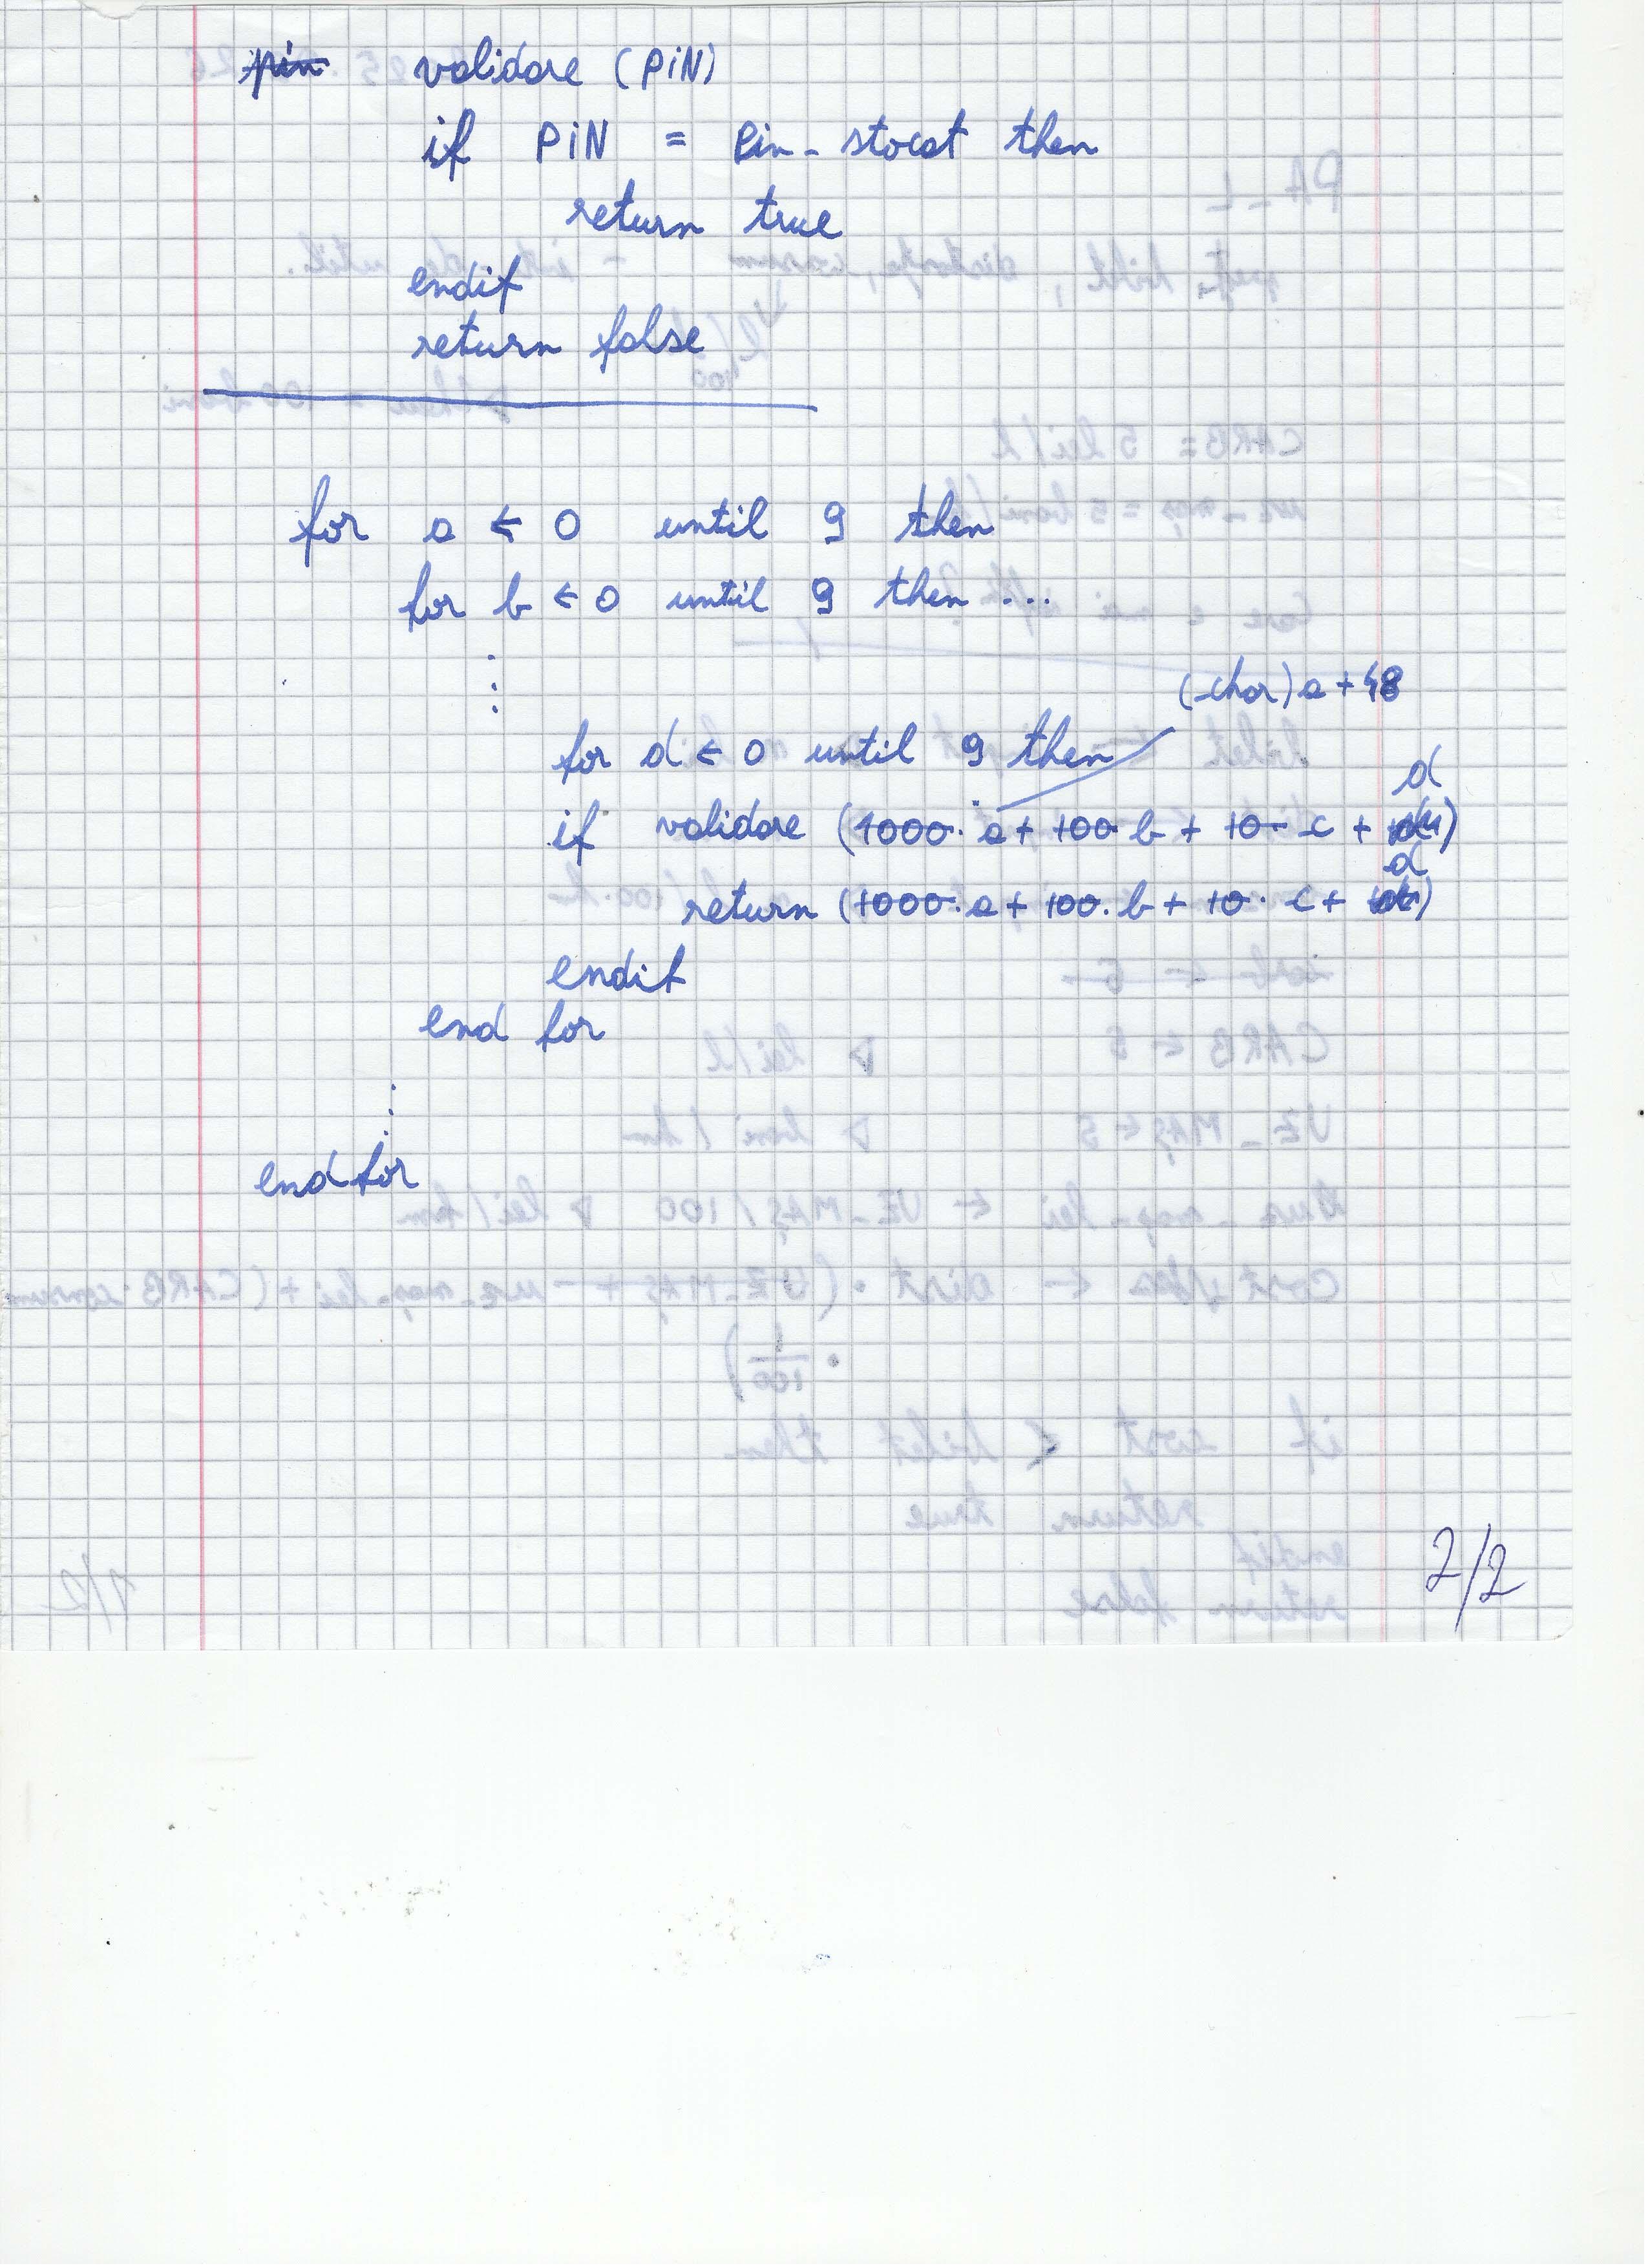 pin validare (PiN)
if PiN = Pin_stocat then
return true
endif
return false
for a ← 0 until 9 then
for b ← 0 until 9 then ...
⋮
(char) a + 48
for d ← 0 until 9 then
d
if validare (1000· a + 100· b + 10· c + )
d
return (1000· a + 100. b + 10· c + )
endif
end for
⋮
end for
2/2